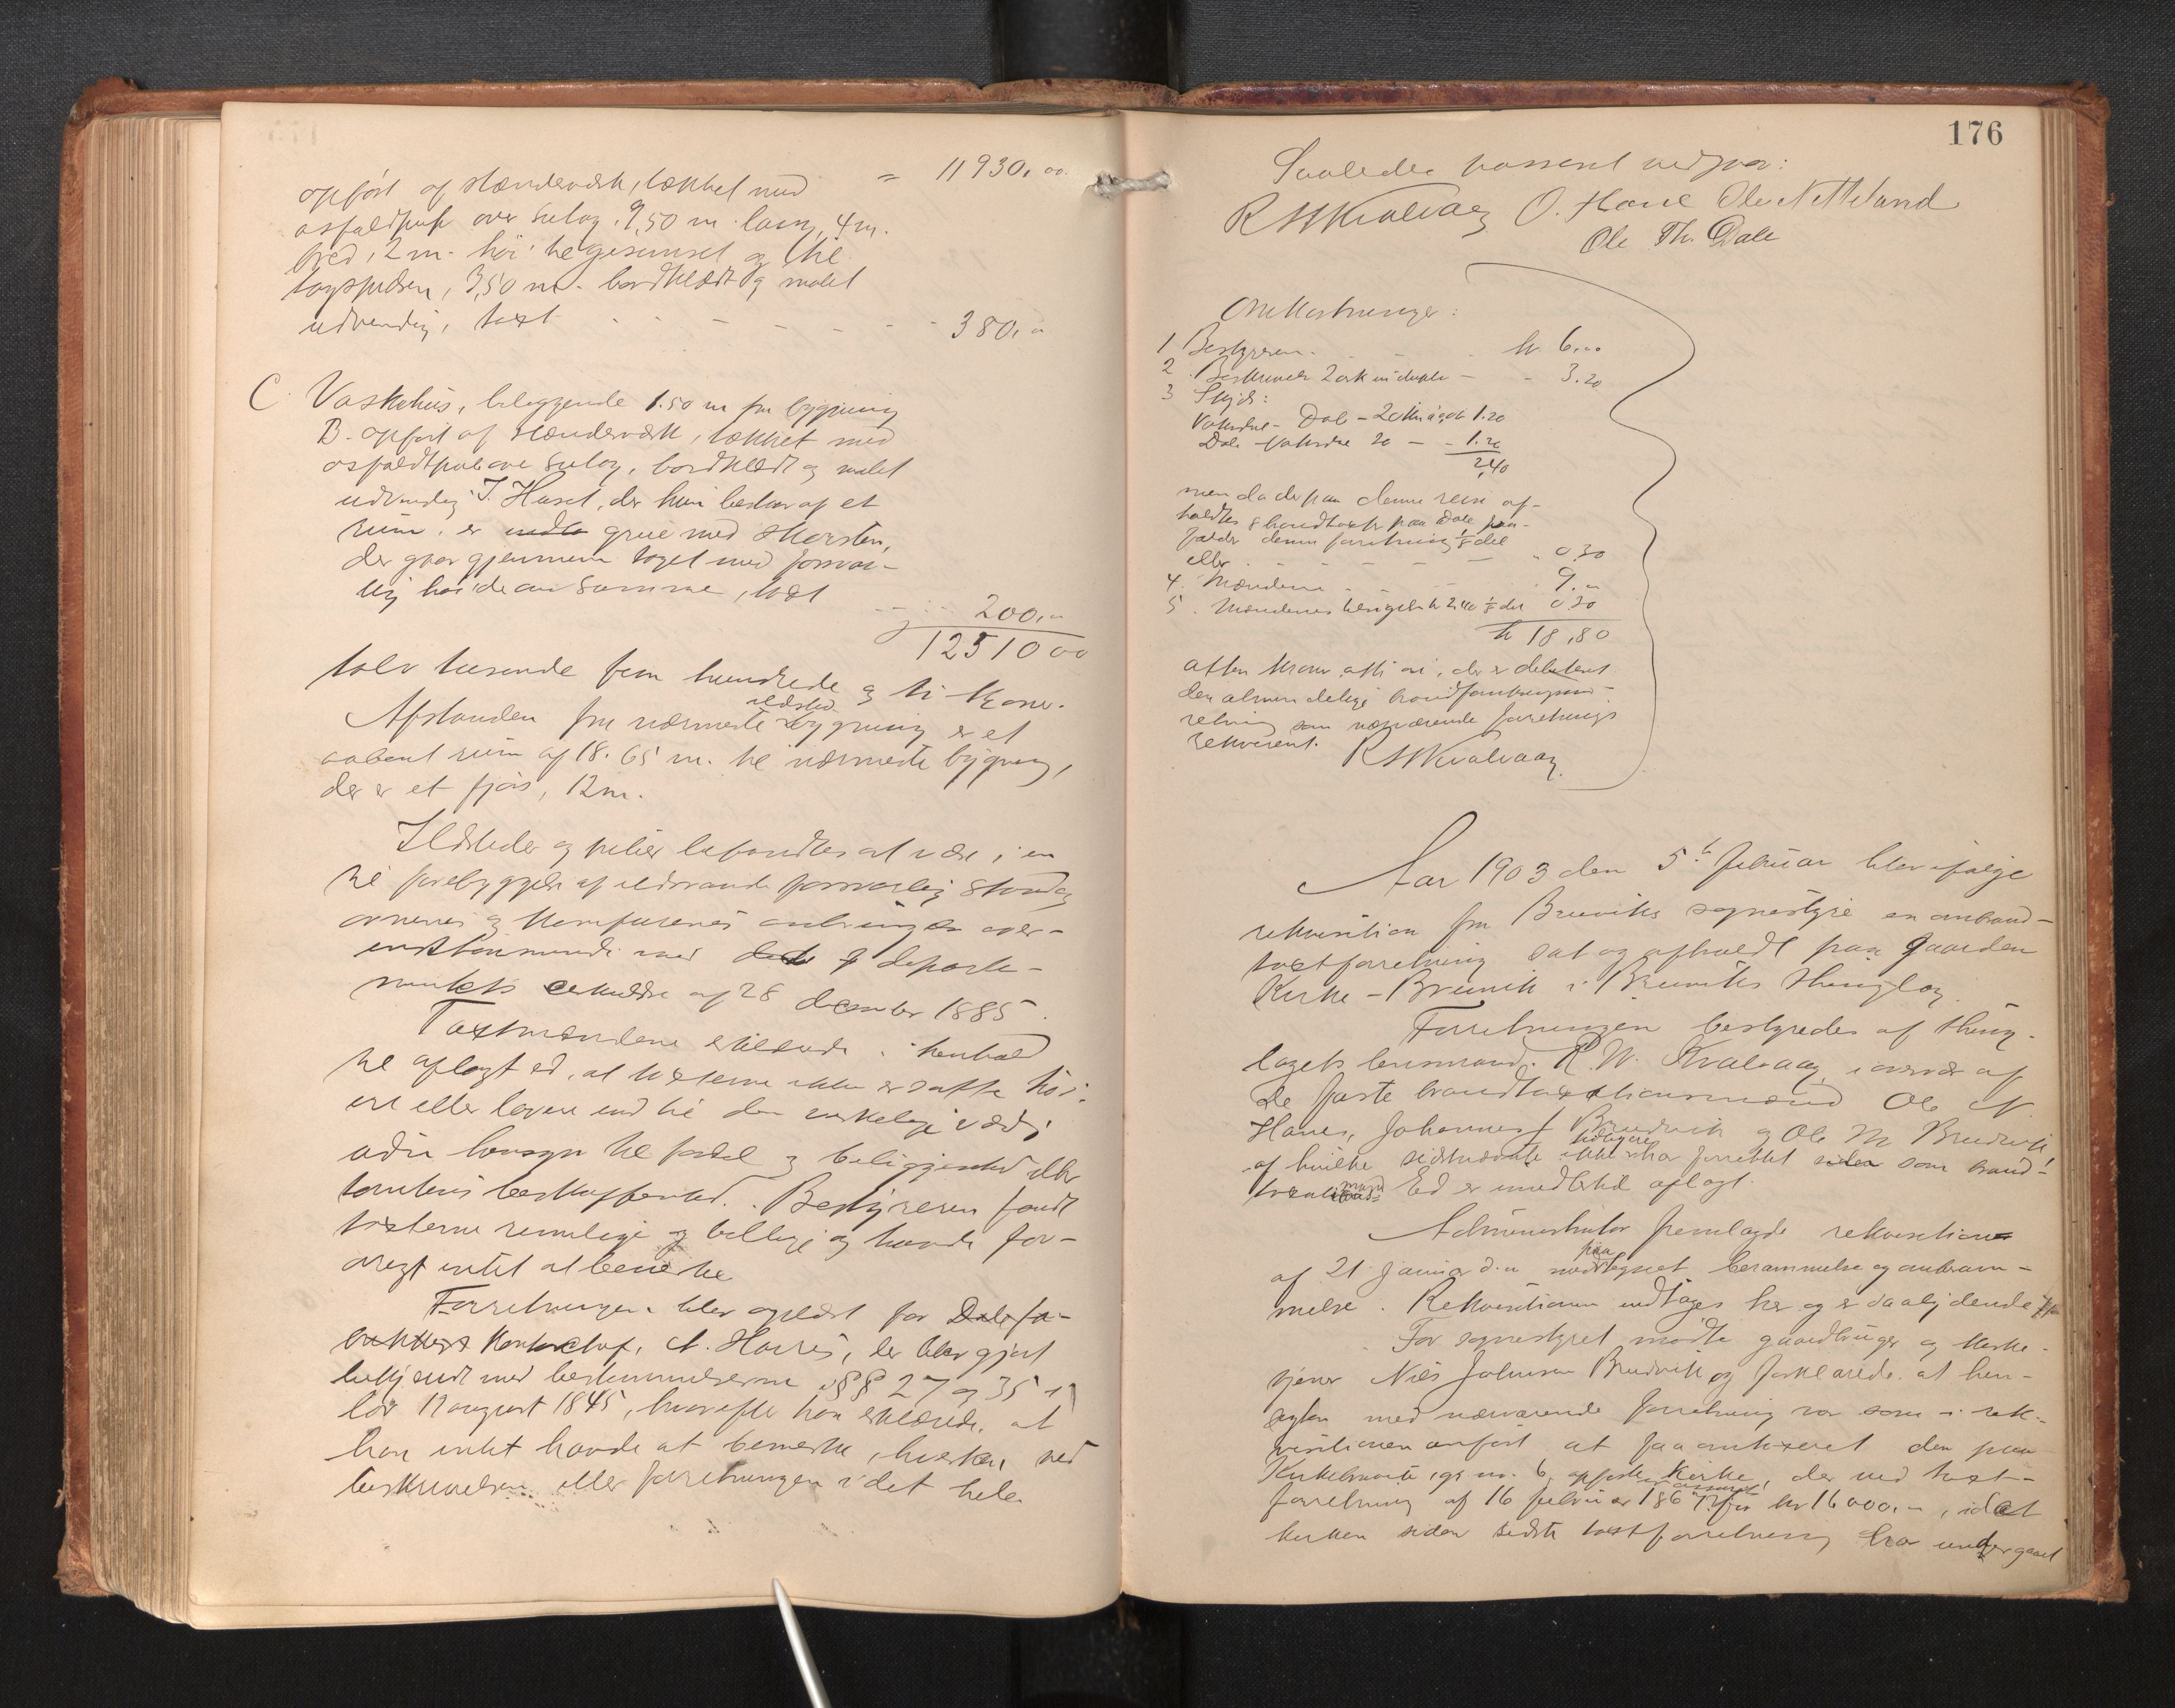 = 11930,00
opført af stænderværk, tækket med
asfaldtpap over sutag. 9,50 m. lang, 4 m.
bred, 2 m. høi til gesimset og til
tagspidsen, 3,50 m. bordklædt og malet
udvendig, taxt - - - - - - - 380,00
C Vaskehus, beliggende 1.50 m fra bygning
B. opført af stænderværk, tækket med
asfaldtpap over sutag, bordklædt og malet
udvendig. I Huset, der kun bestaar af et
rum, er grue med skorsten,
der gaar gjennem taget med forsvar-
lig høide over samme, taxt
200,00
12510 00
tolv tusende fem hundrede og ti kroner.
Afstanden fra nærmeste ildsted bygning er et
aabent rum af 18.65 m. til nærmeste bygning,
der er et fjøs, 12 m.
Ildsteder og piber befandtes at være i en
til forebyggelse af ildsvaade forsvarlig stand og
ovnenes og komfurenes anbringelse over-
ensstemmende med departe-
mentets cirkulære af 28 december 1885.
Taxtmændene erklærede i henhold
til aflagt ed, at taxterne ikke er satte høi-
ere eller lavere end til den virkelige værdi
uden hensyn til fordel og beliggenhed eller
tomtens beskaffenhed. Bestyreren fandt
taxterne rimelige og billige og havde for-
øvrigt intet at bemerke
Forretningen blev oplæst for Dale fa-
brikkers Kontorchef, A. Harris, der blev gjort
bekjendt med bestemmelserne i §§ 27 og 35 i
lov 19 august 1845, hvorefter han erklærede, at
han intet havde at bemerke, hverken ved
beskrivelsen eller forretningen i det hele.
176
Saaledes passeret vedgaar:
R W Kvalvaag O. Hane Ole N Helland
Ole Th. Dale
Omkostninger:
1 Bestyreren - - - kr 6,00
2 Beskrivelse 2 ark in duplo - - 3.20
3 Skyds:
Vaksdal - Dale - 20 km á 6 øre 1.20
Dale - Vaksdal 20 - - 1.20
2,40
men da der paa denne reise af-
holdtes 8 brandtaxter paa Dale paa-
falder denne forretning 1/8 del
eller - - - - - - " 0.30
4. Mændene - - - - 9.-
5. Mændenes kr 2,40 1/8 del 0.30
kr 18,80
atten kroner, otti øre, der er debiteret
den almindelige brandforsikringsind-
retning som nærværende forretnings
rekvirent. R W Kvalvaag
Aar 1903 den 5te februar blev ifølge
rekvisition fra Bruviks sognestyre en ombrand-
taxtforretning sat og afholdt paa gaarden
Kirke-Bruvik i Bruviks thinglag.
Forretningen bestyredes af thing-
lagets lensmand R. W. Kvalvaag i overvær af
de faste brandtaxtionsmænd Ole N.
Hanes, Johannes J Bruvik og Ole M Bruvik,
af hvilke sidstnævnte ikke tidligere har forrettet som brand-
taxtmand. Ed er imidlertid aflagt.
Administrator fremlagde rekvisition
af 21 januar d.a. med paategnet berammelse og anbram-
melse. Rekvisitionen indtages her og er saalydende
For sognestyret mødte gaardbruger og kirke-
tjener Nils Johnsen Bruvik og forklarede at hen-
sigten med nærværende forretning var som i rek-
visitionen anført at faa omtaxeret den paa
Kirkebruvik, gr no. 6, opførte Kirke, der ved taxt-
forretning af 16 februar 1867 assureret for kr 16000,-, idet
kirken siden sidste taxtforretning har undergaaet